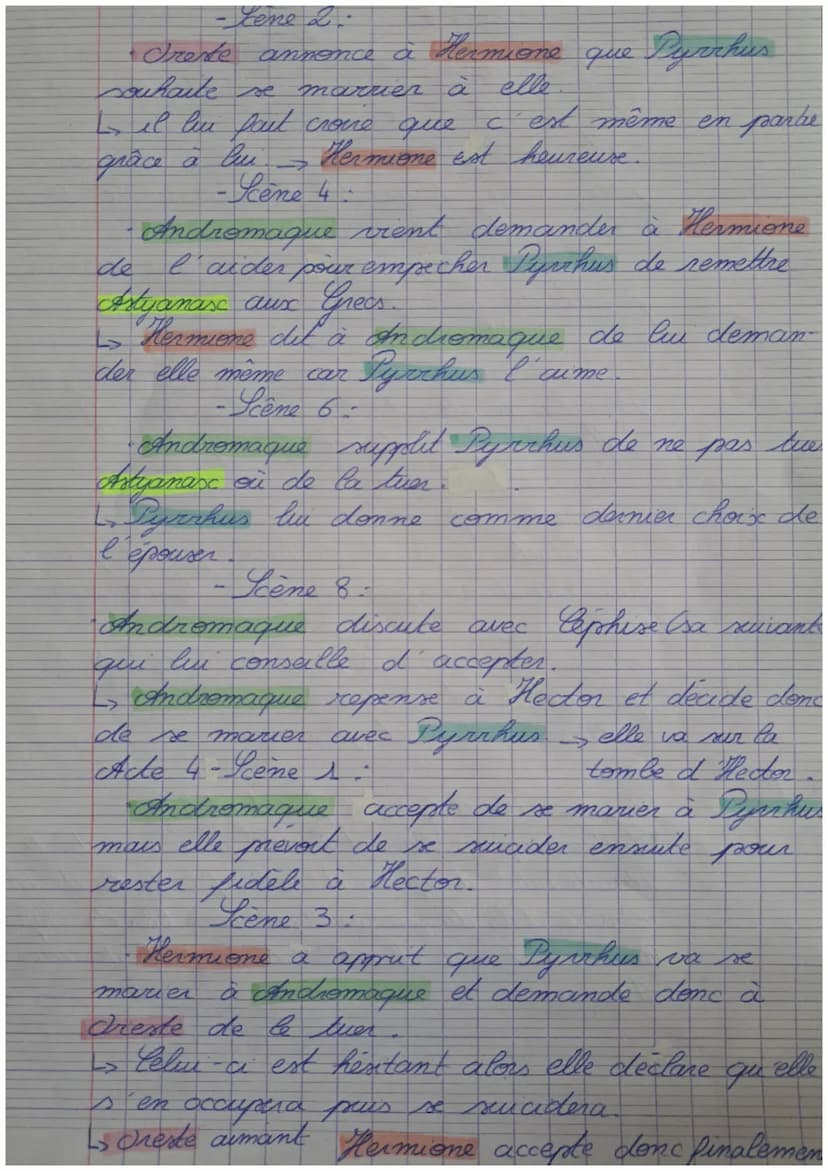 - Scène 2 :
· Oreste annonce à Hermione que Pyrrhus
souhaite se marrier à elle.
↳ il lui fait croire que c'est même en partie
grâce à lui. → Hermione est heureuse.
- Scène 4 :
· Andromaque vient demander à Hermione
de l'aider pour empecher Pyrrhus de remettre
Astyanax aux Grecs.
↳ Hermione dit à Andromaque de lui deman-
der elle même car Pyrrhus l'aime.
- Scêne 6 :
· Andromaque supplit Pyrrhus de ne pas tue
Astyanax où de la tuer.
↳ Pyrrhus lui donne comme dernier choix de
l'épouser.
- Scène 8 :
· Andromaque discute avec Céphise (sa suivant
qui lui conseille d'accepter.
↳ Andromaque repense à Hector et décide donc
de se marier avec Pyrrhus → elle va sur la
tombe d'Hector.
Acte 4 - Scène 1 :
· Andromaque accepte de se marier à Pyrrhus
mais elle prévoit de se suicider ensuite pour
rester fidèle à Hector.
Scène 3 :
· Hermione a apprit que Pyrrhus va se
marier à Andromaque et demande donc à
Oreste de le tuer.
↳ Celui-ci est hésitant alors elle déclare qu'elle
s'en occupera puis se suicidera.
↳ Oreste aimant Hermione accepte donc finalemen